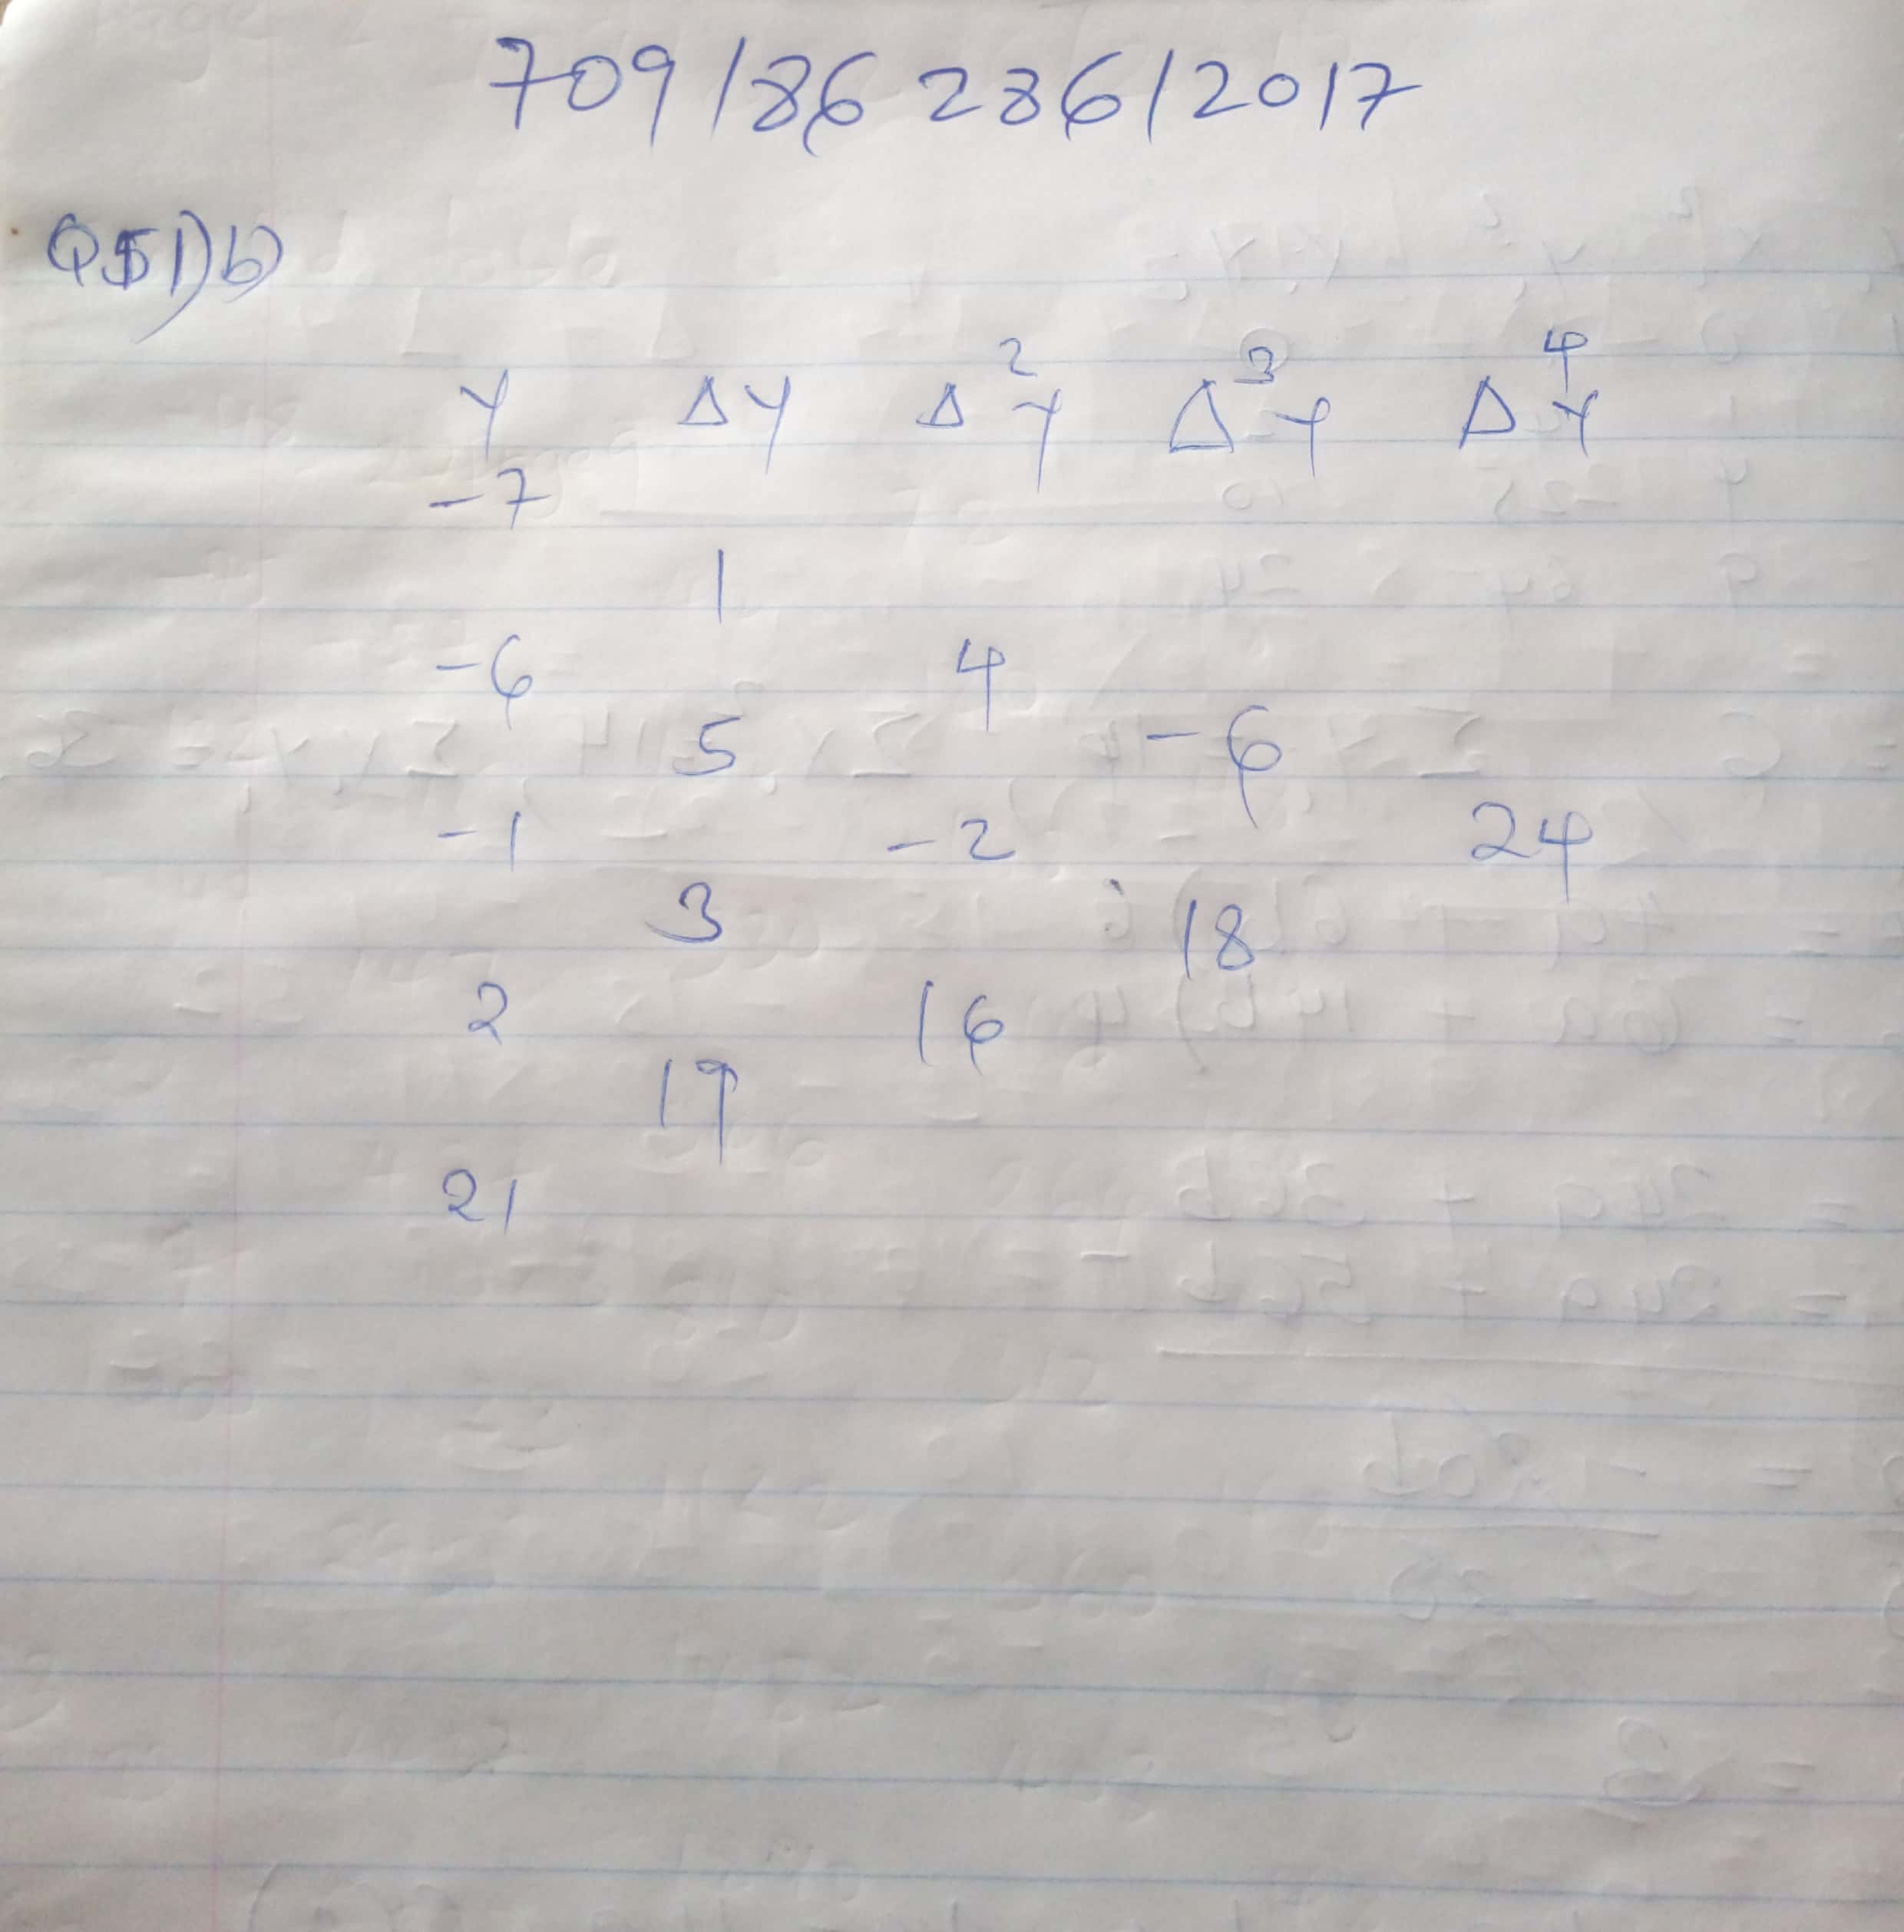 709/86286/2017
Q51)b)
Y ΔY Δ²Y Δ³Y Δ⁴Y
-7
1
-6 4
5 -6
-1 -2 24
3 18
2 16
19
21